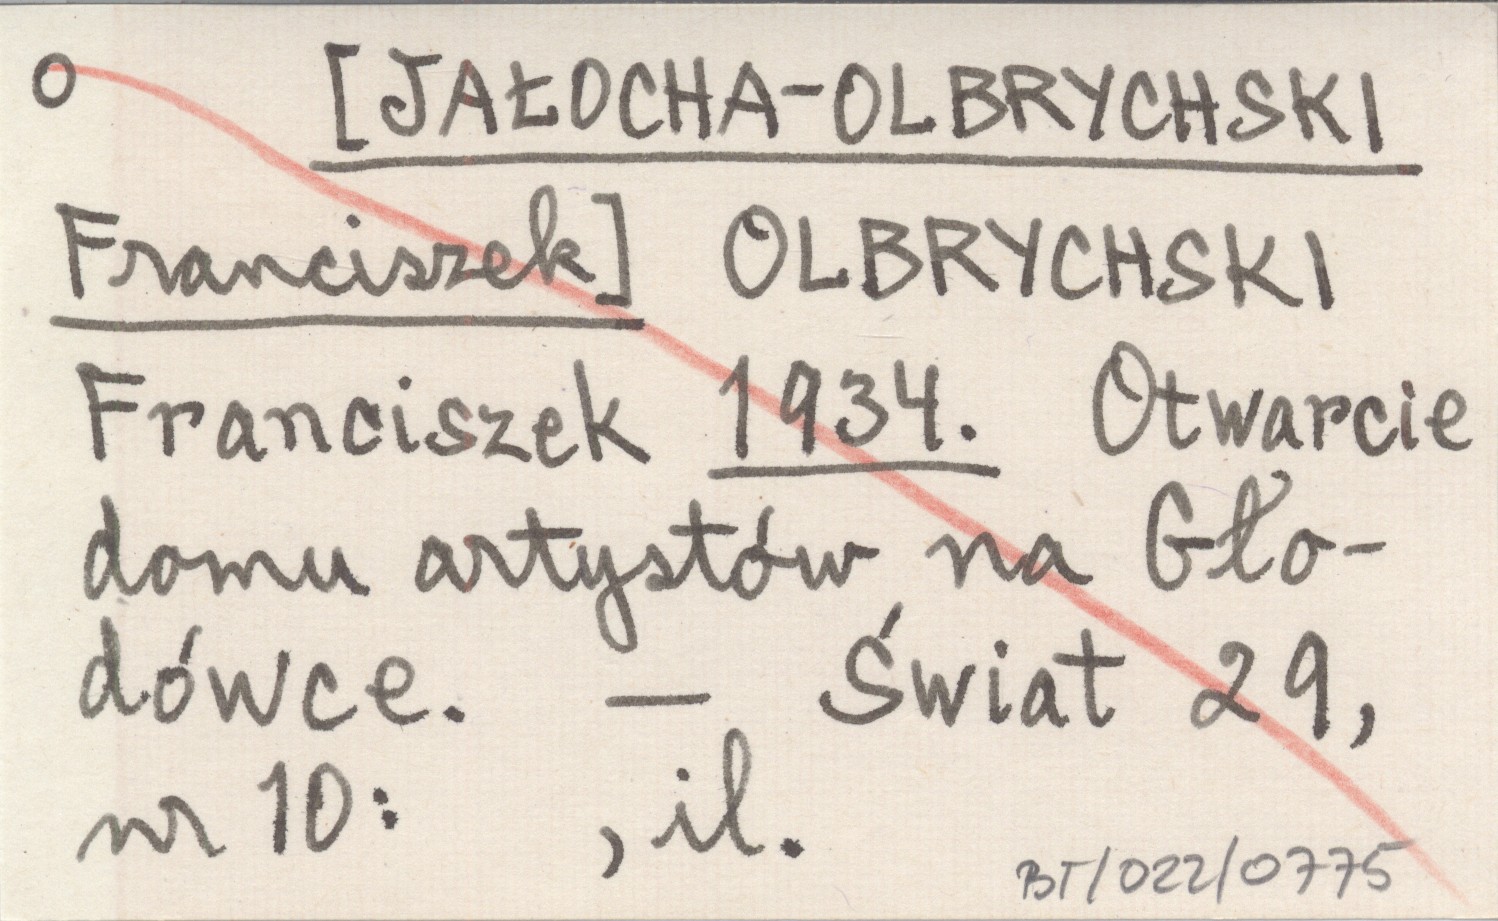 O [JAŁOCHA-OLBRYCHSKI
Franciszek] OLBRYCHSKI
Franciszek 1934. Otwarcie
domu artystów na Gło-
dówce. — Świat 29,
nr 10: , il.
BT/022/0775